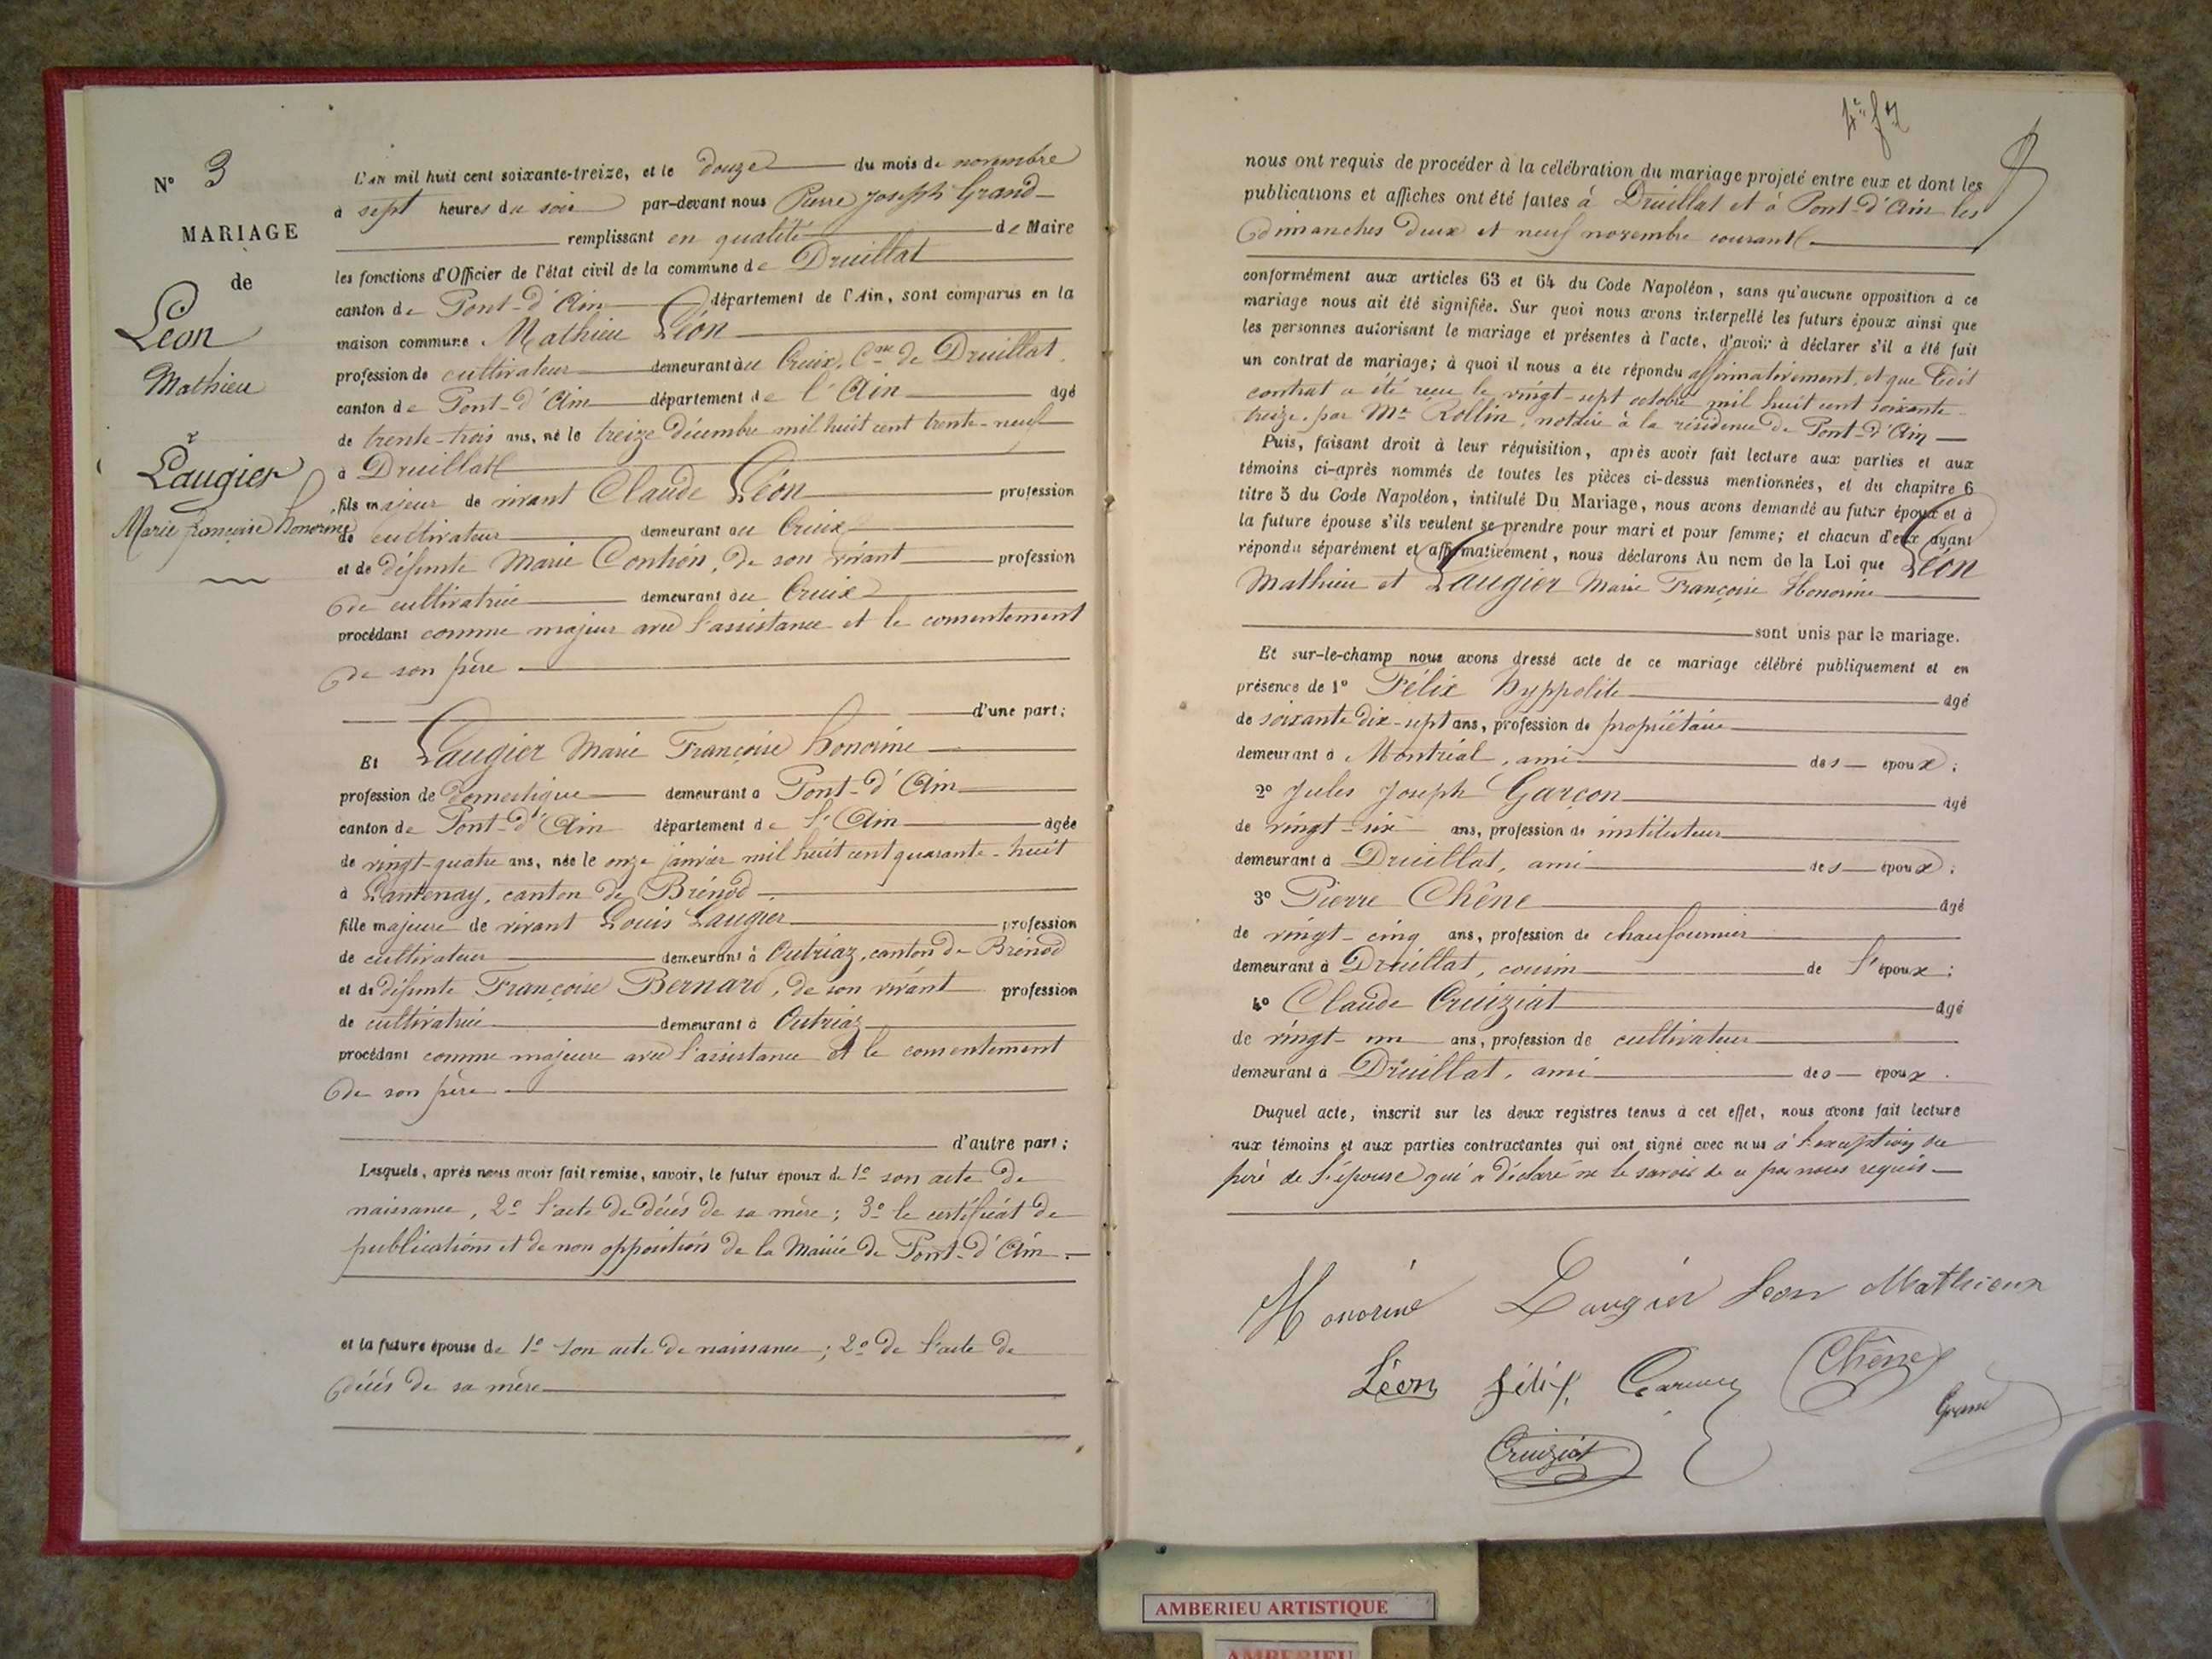 N° 3
MARIAGE
de
Léon
Mathieu
&
Laugier
Marie françoise honorine
L'an mil huit cent soixante-treize, et le douze du mois de novembre
à sept heures du soir par-devant nous Pierre Joseph Grand
remplissant en qualité de Maire
les fonctions d'Officier de l'état civil de la commune de Druillat
canton de Pont-d'Ain département de l'Ain, sont comparus en la
maison commune Mathieu Léon
profession de cultivateur demeurant au Cruix, Cne de Druillat,
canton de Pont-d'Ain département de l'Ain âgé
de trente-trois ans, né le treize décembre mil huit cent trente-neuf
à Druillat
fils majeur de vivant Claude Léon profession
de cultivateur demeurant au Cruix
et de défunte Marie Contion, de son vivant profession
de cultivatrice demeurant au Cruix
procédant comme majeur avec l'assistance et le consentement
de son père
d'une part;
Et Laugier Marie Françoise honorine
profession de domestique demeurant à Pont-d'Ain
canton de Pont-d'Ain département de l'Ain âgée
de vingt-quatre ans, née le onze janvier mil huit cent quarante-huit
à Lantenay, canton de Brénod
fille majeure de vivant Louis Laugier profession
de cultivateur demeurant à Outriaz, canton de Brénod
et de défunte Françoise Bernard, de son vivant profession
de cultivatrice demeurant à Outriaz
procédant comme majeure avec l'assistance et le consentement
de son père
d'autre part;
Lesquels, après nous avoir fait remise, savoir, le futur époux de 1° son acte de
naissance, 2° l'acte de décès de sa mère; 3° le certificat de
publications et de non opposition de la Mairie de Pont-d'Ain.
et la future épouse de 1° son acte de naissance; 2° de l'acte de
décès de sa mère
nous ont requis de procéder à la célébration du mariage projeté entre eux et dont les
publications et affiches ont été faites à Druillat et à Pont-d'Ain les
dimanches deux et neuf novembre courant
conformément aux articles 63 et 64 du Code Napoléon, sans qu'aucune opposition à ce
mariage nous ait été signifiée. Sur quoi nous avons interpellé les futurs époux ainsi que
les personnes autorisant le mariage et présentes à l'acte, d'avoir à déclarer s'il a été fait
un contrat de mariage; à quoi il nous a été répondu affirmativement, et que ledit
contrat a été reçu le vingt-sept octobre mil huit cent soixante
treize, par Me Rollin, notaire à la résidence de Pont-d'Ain
Puis, faisant droit à leur réquisition, après avoir fait lecture aux parties et aux
témoins ci-après nommés de toutes les pièces ci-dessus mentionnées, et du chapitre 6
titre 5 du Code Napoléon, intitulé Du Mariage, nous avons demandé au futur époux et à
la future épouse s'ils veulent se prendre pour mari et pour femme; et chacun d'eux ayant
répondu séparément et affirmativement, nous déclarons Au nom de la Loi que Léon
Mathieu et Laugier Marie Françoise Honorine
sont unis par le mariage.
Et sur-le-champ nous avons dressé acte de ce mariage célébré publiquement et en
présence de 1° Félix Hyppolite âgé
de soixante dix-sept ans, profession de propriétaire
demeurant à Montréal, ami des époux;
2° Jules Joseph Garçon âgé
de vingt-six ans, profession de instituteur
demeurant à Druillat, ami des époux;
3° Pierre Chêne âgé
de vingt-cinq ans, profession de chaufournier
demeurant à Druillat, cousin de l'époux;
4° Claude Cruiziat âgé
de vingt-un ans, profession de cultivateur
demeurant à Druillat, ami des époux.
Duquel acte, inscrit sur les deux registres tenus à cet effet, nous avons fait lecture
aux témoins et aux parties contractantes qui ont signé avec nous à l'exception du
père de l'épouse qui a déclaré ne le savoir de ce par nous requis
Honorine Laugier Leon Mathieux
Léon félix Garçon Chêne
Grand
Cruiziat
AMBERIEU ARTISTIQUE
AMBERIEU